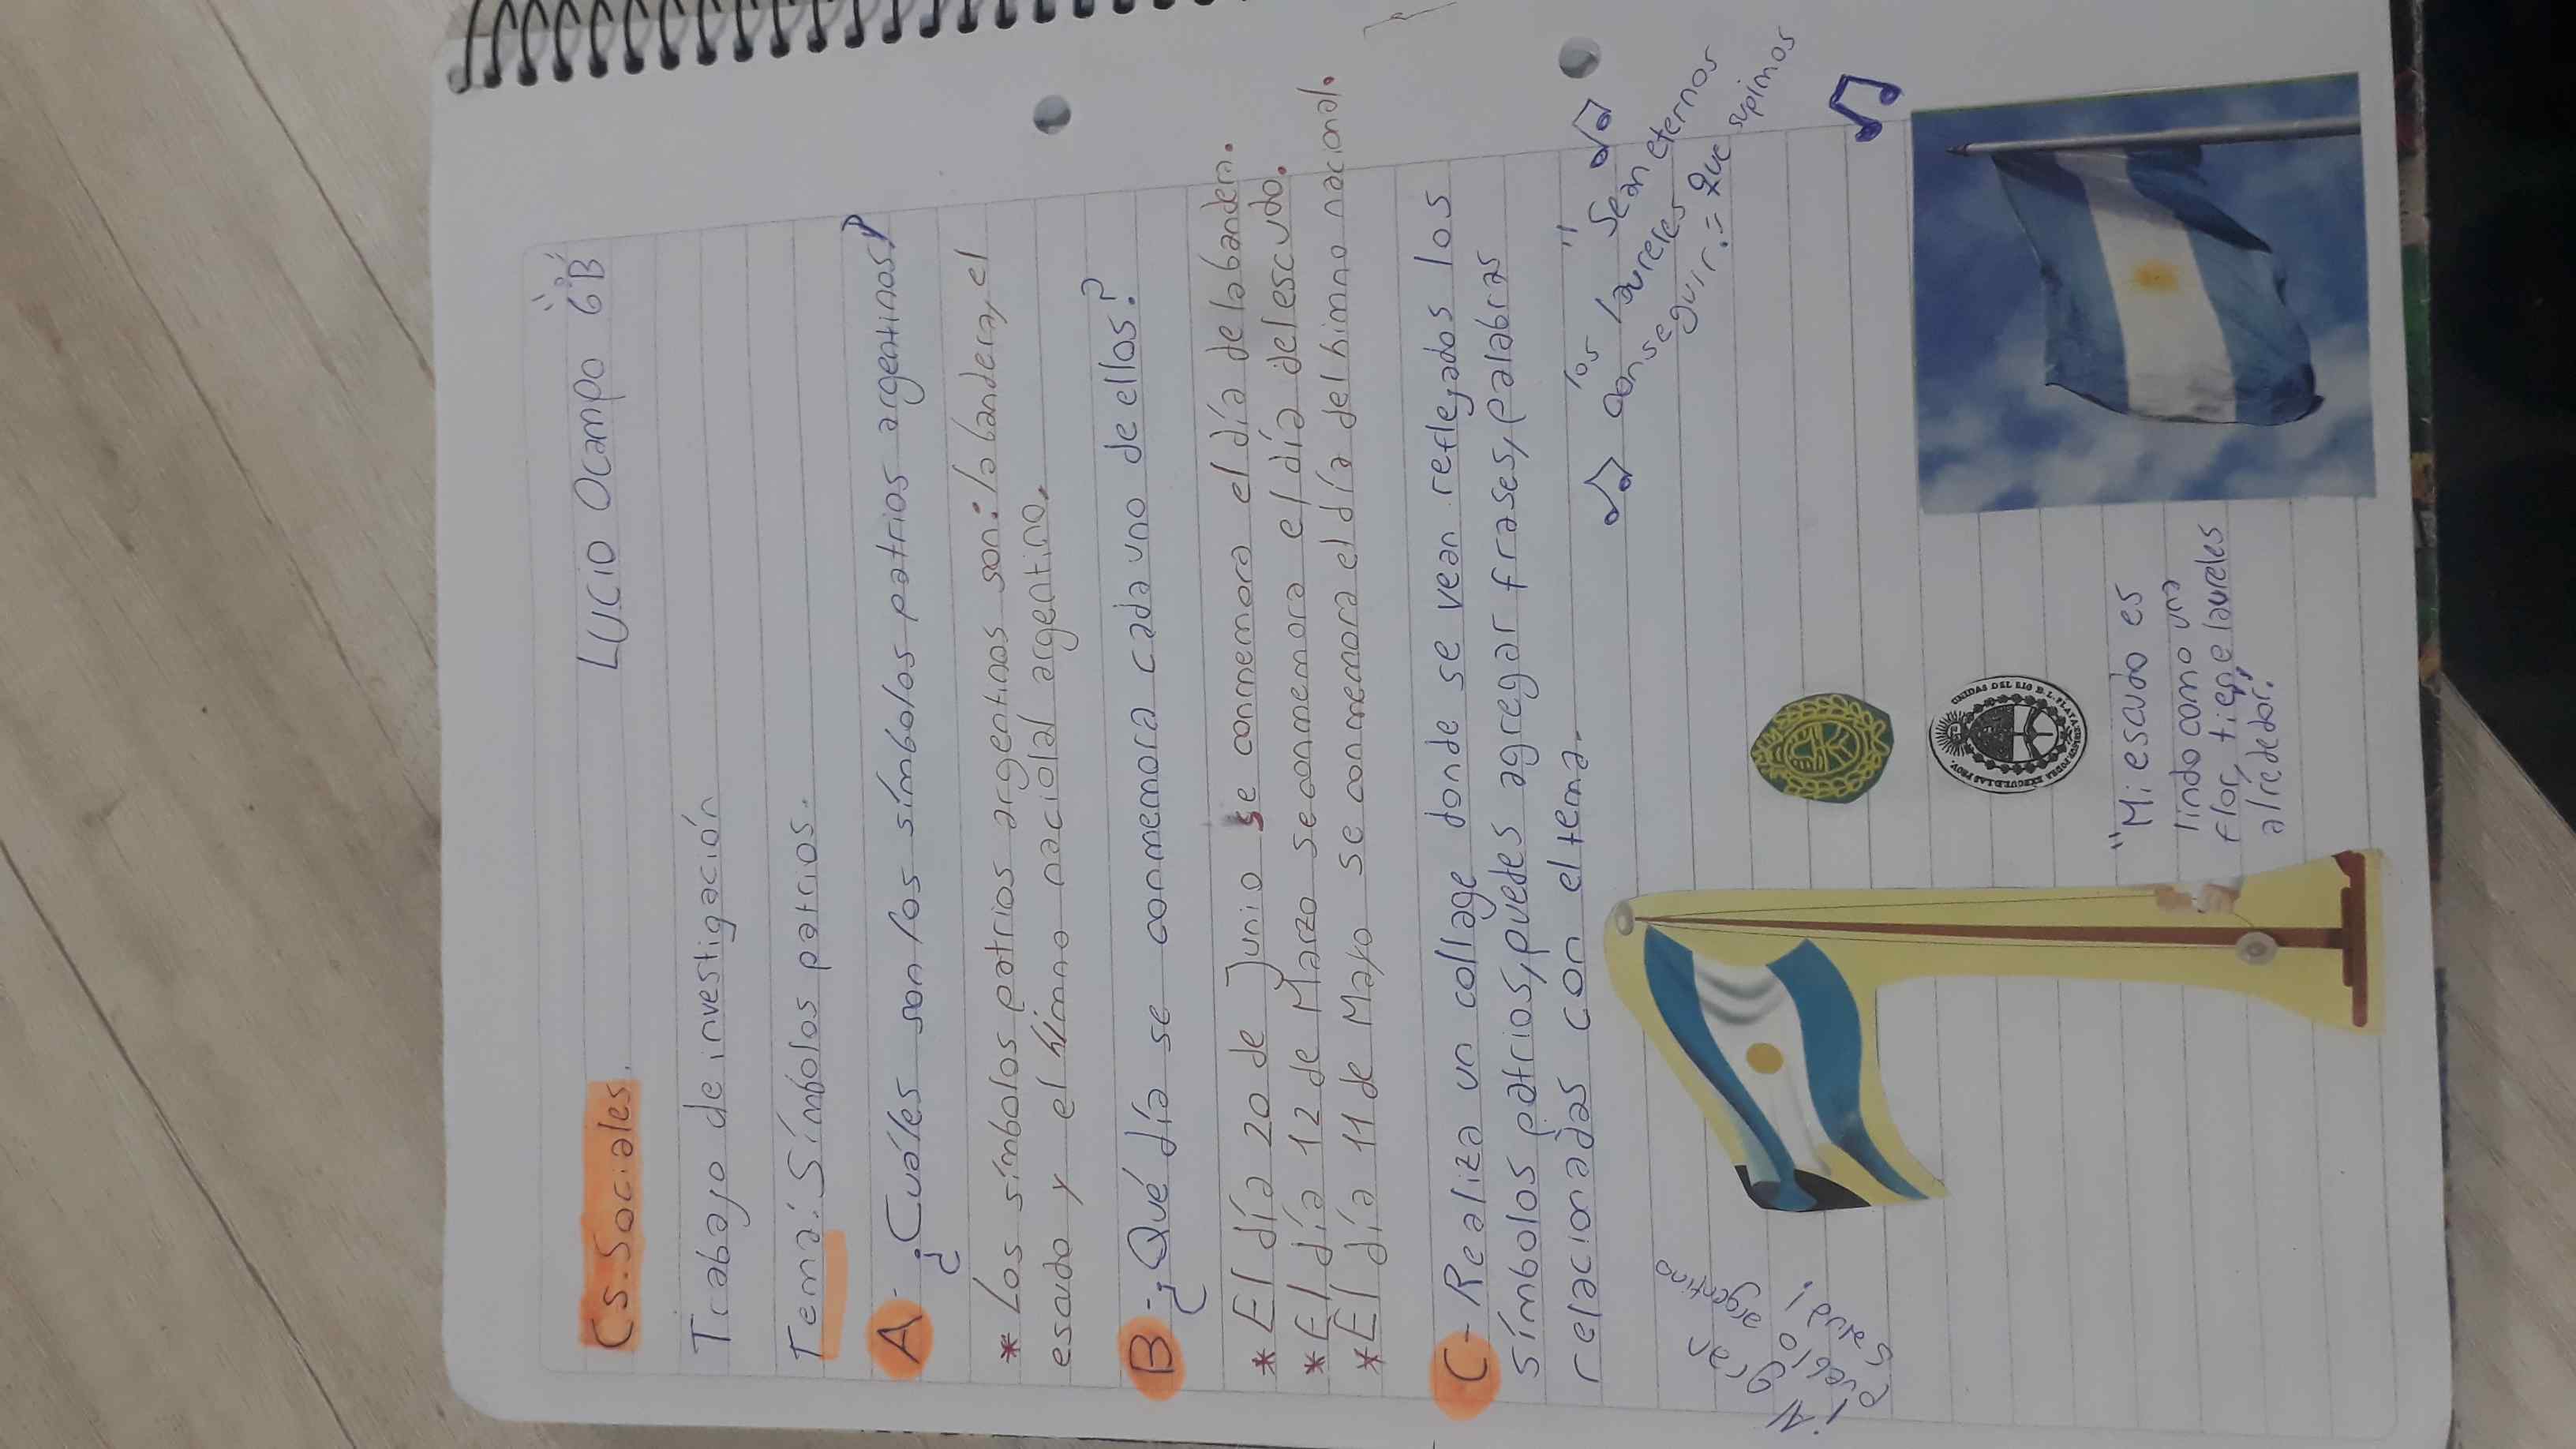 Cs. Sociales.
Lucio Ocampo 6"B"
Trabajo de investigación
Tema: Símbolos patrios.
A- ¿Cuáles son los símbolos patrios argentinos?
* Los símbolos patrios argentinos son: la bandera, el
escudo y el himno naciolal argentino.
B- ¿Qué día se conmemora cada uno de ellos?
* El día 20 de Junio se conmemora el día de la bandera.
* El día 12 de Marzo se conmemora el día del escudo.
* El día 11 de Mayo se conmemora el día del himno nacional.
C- Realiza un collage donde se vean reflejados los
símbolos patrios, puedes agregar frases, palabras
relacionadas con el tema.
Al gran
argentino
¡Pueblo
salud!
" Sean eternos
los laureles
que supimos
conseguir.=
"Mi escudo es
lindo como una
flor, tiene laureles
alrededor."
UNIDAS DEL RIO D. L. PLATA
LAS PROV.